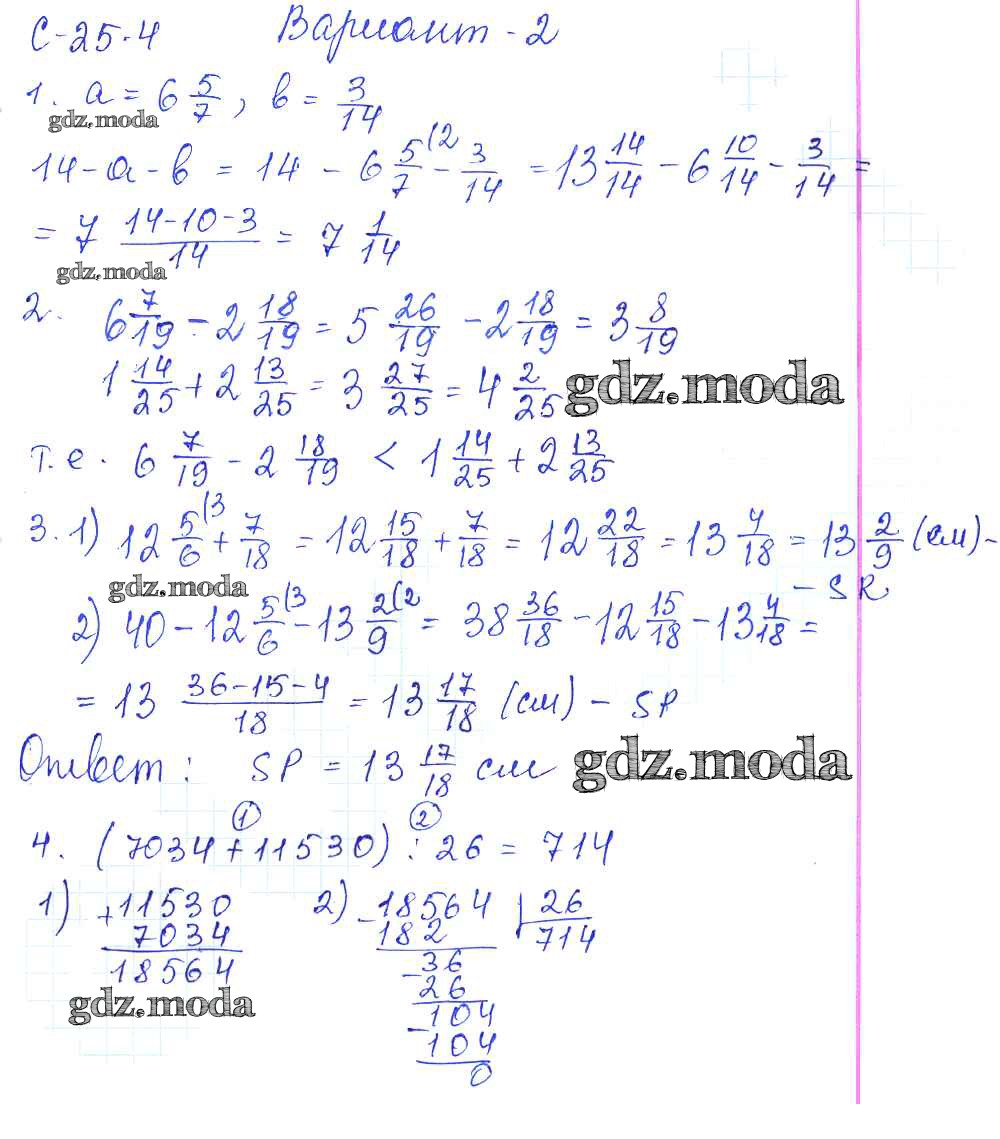 С-25-4 Вариант-2
1. a = 6 5/7, b = 3/14
gdz.moda
14 - a - b = 14 - 6 5/7 (2 - 3/14 = 13 14/14 - 6 10/14 - 3/14 =
= 7 (14-10-3)/14 = 7 1/14
gdz.moda
2. 6 7/19 - 2 18/19 = 5 26/19 - 2 18/19 = 3 8/19
1 14/25 + 2 13/25 = 3 27/25 = 4 2/25 gdz.moda
т.е. 6 7/19 - 2 18/19 < 1 14/25 + 2 13/25
3. 1) 12 5/6 (3 + 7/18 = 12 15/18 + 7/18 = 12 22/18 = 13 4/18 = 13 2/9 (см) -
gdz.moda - SR
2) 40 - 12 5/6 (3 - 13 2/9 (2 = 38 36/18 - 12 15/18 - 13 4/18 =
= 13 (36-15-4)/18 = 13 17/18 (см) - SP
Ответ: SP = 13 17/18 см gdz.moda
1 2
4. (7034 + 11530) : 26 = 714
1) +11530 2) -18564 | 26
7034 182 714
18564 -36
gdz.moda 26
-104
104
0